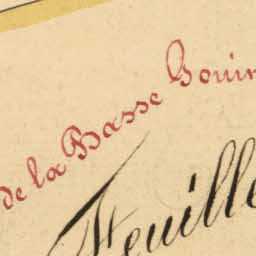 de la Basse Gouin
Feuille